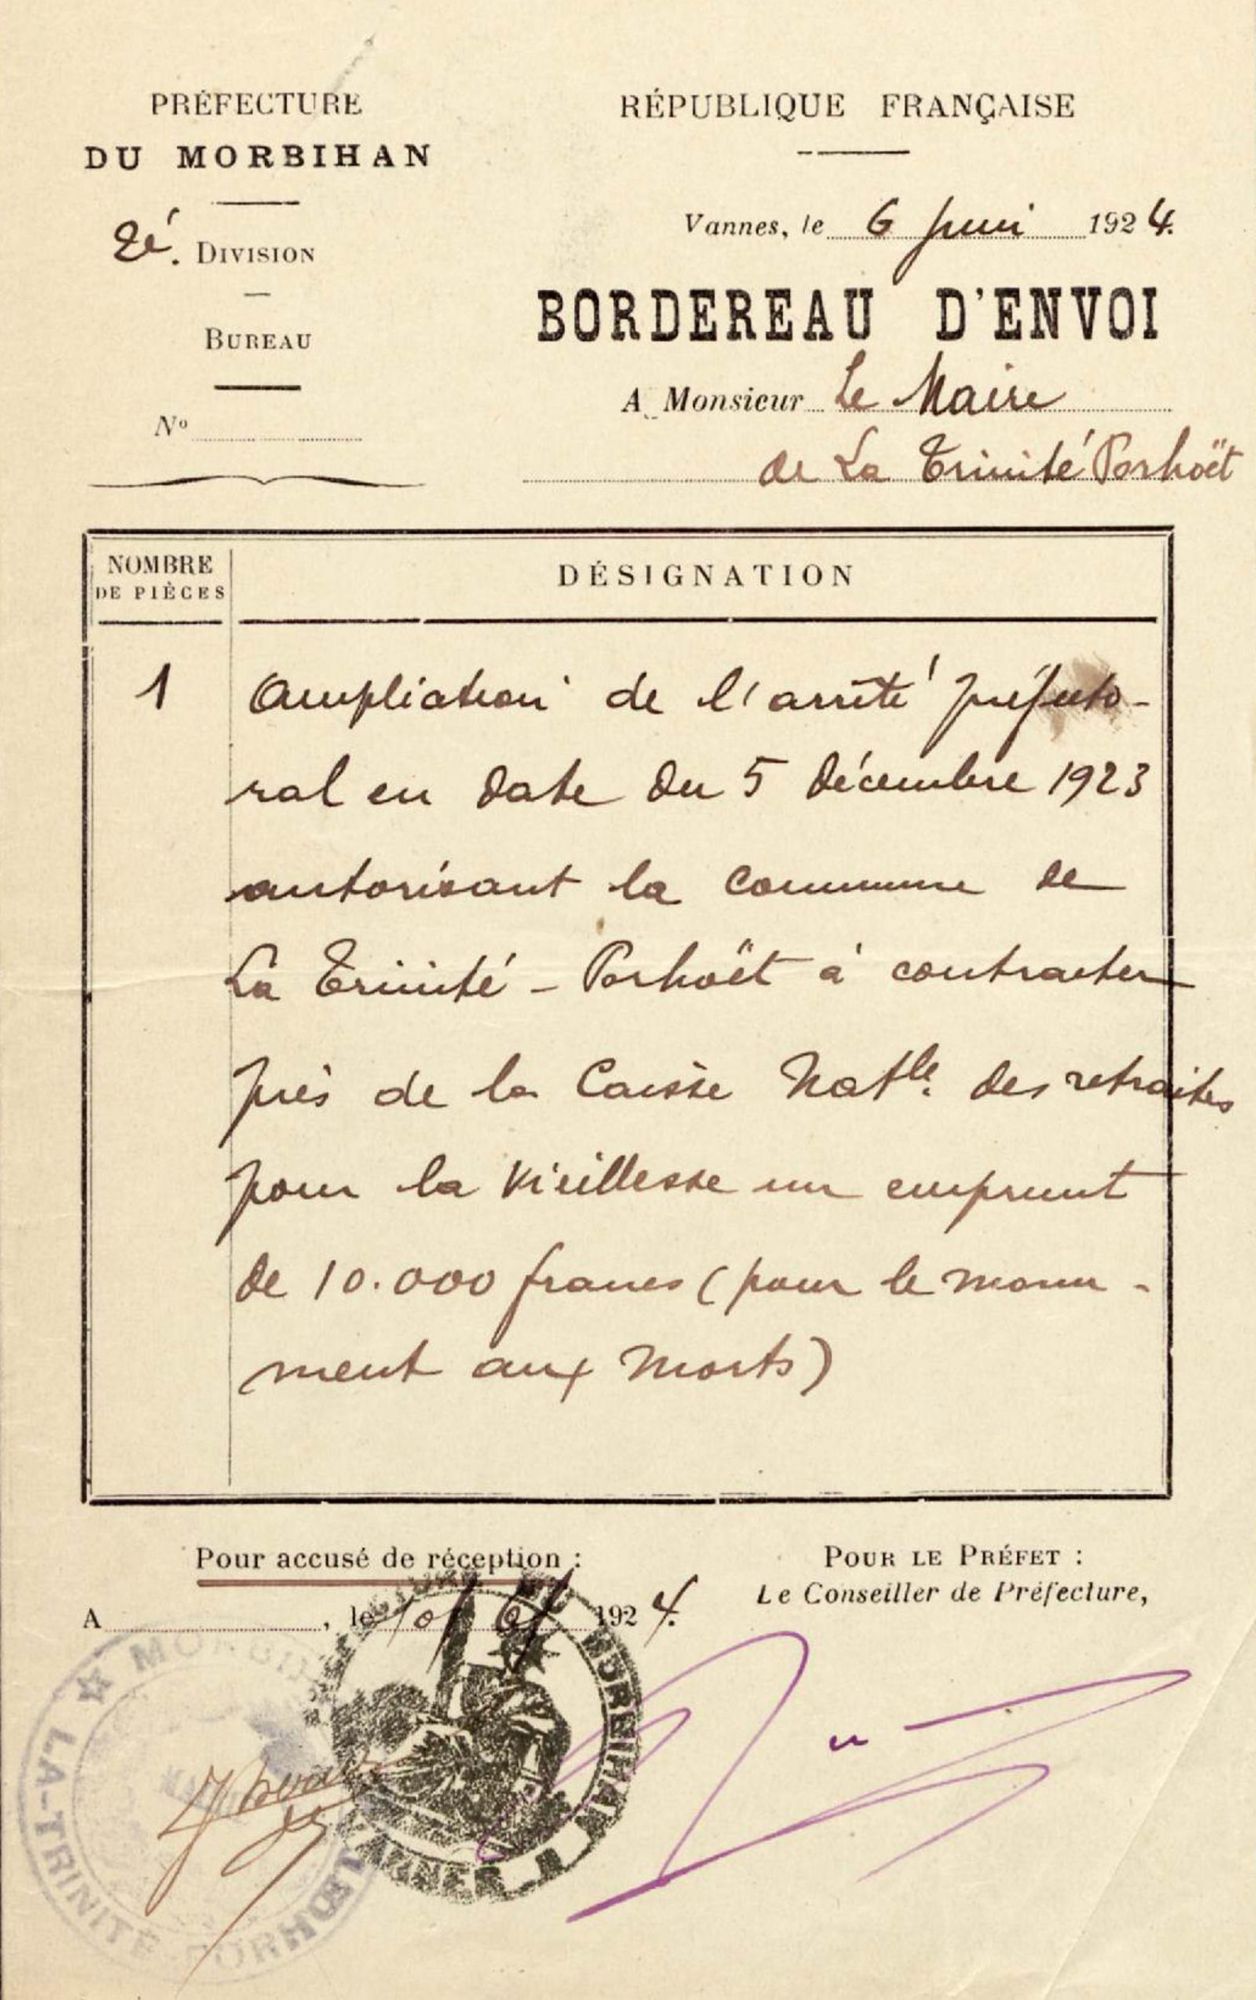 PRÉFECTURE
DU MORBIHAN
2è. DIVISION
BUREAU
No
RÉPUBLIQUE FRANÇAISE
Vannes, le 6 Juin 1924.
BORDEREAU D'ENVOI
A Monsieur Le Maire
de La Trinité Porhoët
NOMBRE
DE PIÈCES
DÉSIGNATION
1 Ampliation de l'arrêté préfecto-
ral en date du 5 décembre 1923
autorisant la commune de
La Trinité - Porhoët à contracter
près de la Caisse Natle. des retraites
pour la vieillesse un emprunt
de 10.000 francs (pour le monu-
ment aux Morts)
Pour accusé de réception :
A , le 10/6/ 1924.
POUR LE PRÉFET :
Le Conseiller de Préfecture,
MORBIHAN
LA-TRINITÉ-PORHOËT
MORBIHAN
VANNES